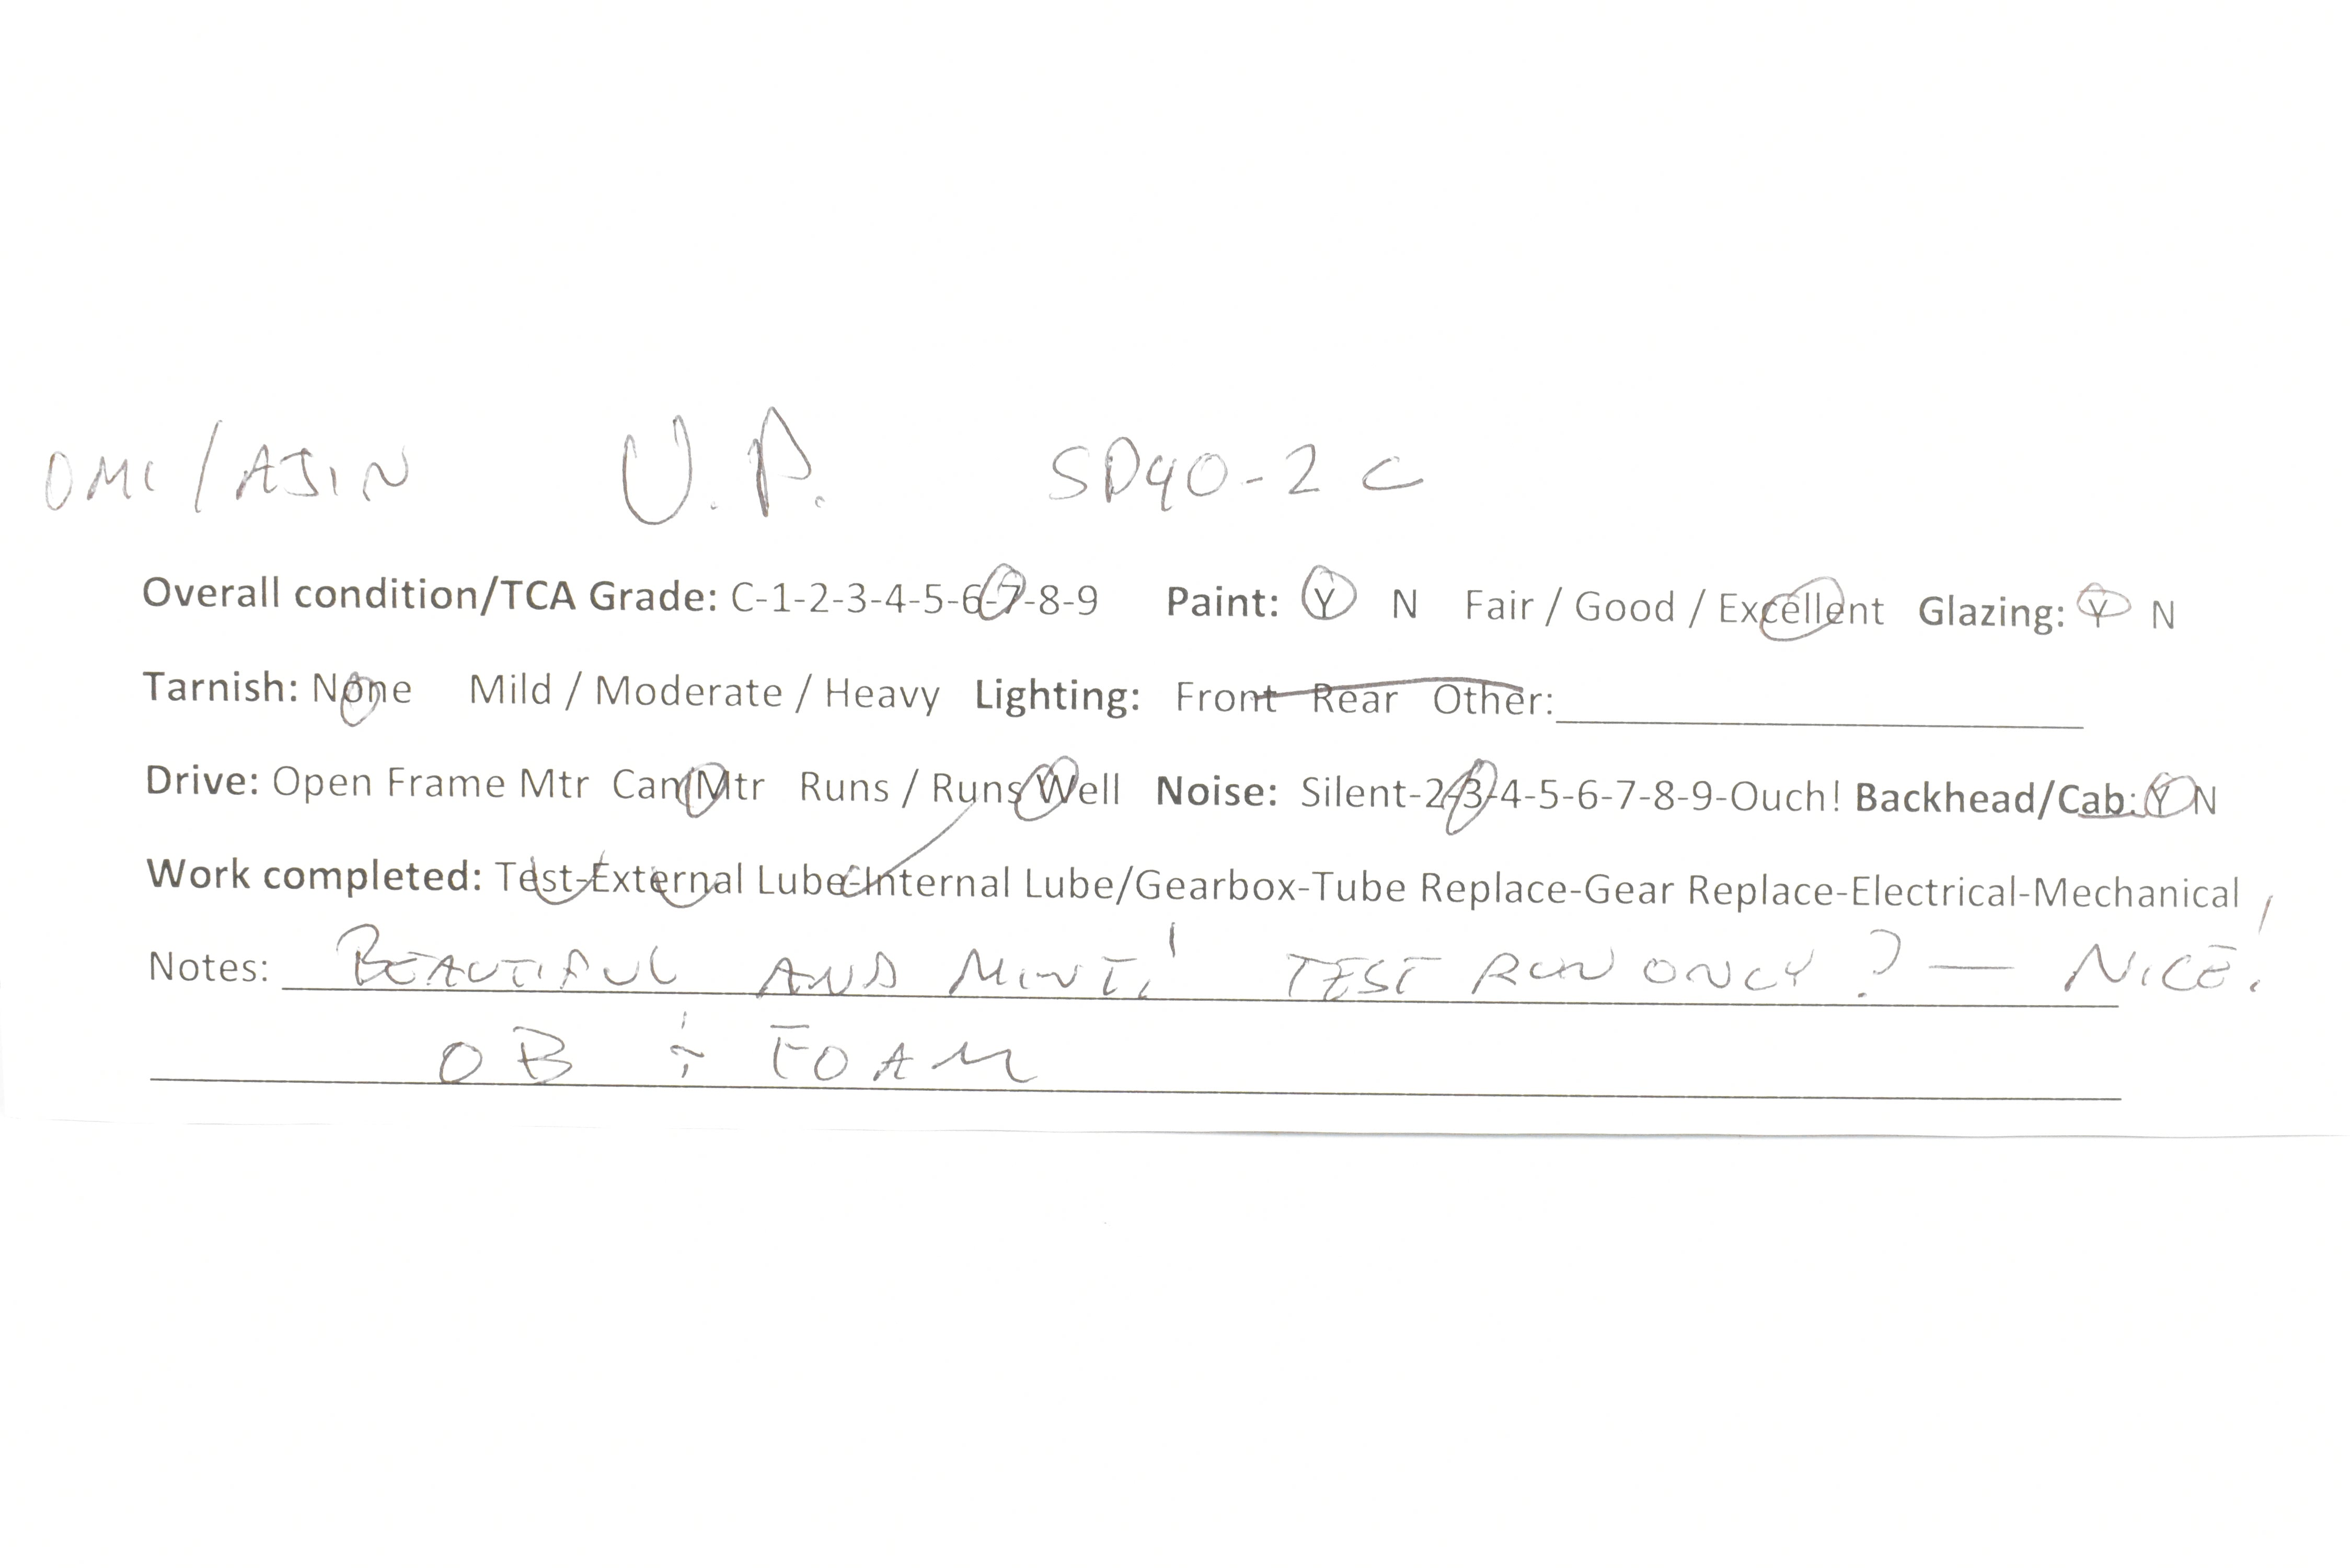 OMI/AJIN U.P. SD40-2 C
Overall condition/TCA Grade: C-1-2-3-4-5-6-7-8-9 Paint: Y N Fair / Good / Excellent Glazing: Y N
Tarnish: None Mild / Moderate / Heavy Lighting: Front Rear Other:
Drive: Open Frame Mtr Can Mtr Runs / Runs Well Noise: Silent-2-3-4-5-6-7-8-9-Ouch! Backhead/Cab: Y N
Work completed: Test-External Lube-Internal Lube/Gearbox-Tube Replace-Gear Replace-Electrical-Mechanical
Notes: BEAUTIFUL AND MINT! TEST RUN ONLY? — NICE!
OB + FOAM